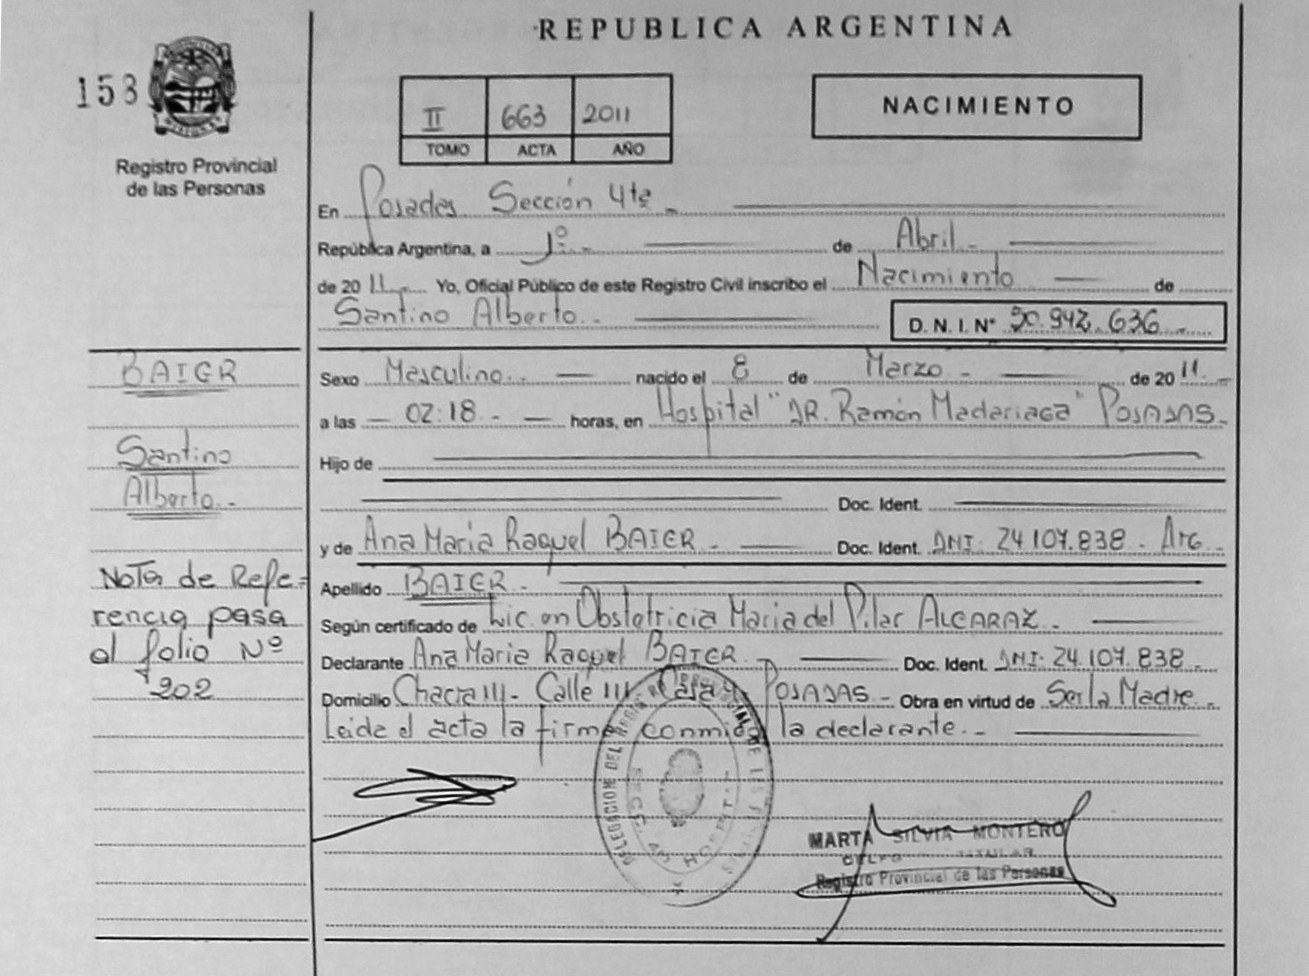 REPUBLICA ARGENTINA
153
II 663 2011
TOMO ACTA AÑO
NACIMIENTO
Registro Provincial
de las Personas
En Posadas Sección 4ta
República Argentina, a 1º de Abril
de 2011 Yo, Oficial Público de este Registro Civil inscribo el Nacimiento de
Santino Alberto D. N. I. Nº 50.942.636
BAIER
Santino
Alberto.-
Nota de Refe-
rencia pasa
al folio Nº
202
Sexo Masculino nacido el 8 de Marzo de 2011
a las 02:18 horas, en Hospital "DR. Ramón Madariaga" POSADAS
Hijo de
Doc. Ident.
y de Ana Maria Raquel BAIER Doc. Ident. DNI: 24.107.838 - Arg
Apellido BAIER
Según certificado de Lic. en Obstetricia Maria del Pilar ALCARAZ
Declarante Ana Maria Raquel BAIER Doc. Ident. DNI: 24.107.838
Domicilio Chacra 111 - Calle 111 Casa POSADAS - Obra en virtud de Ser la Madre
Leída el acta la firma conmigo la declarante.-
DELEGACION DEL REGIS
HOSPIT
MARTA SILVIA MONTERO
TITULAR
Registro Provincial de las Personas